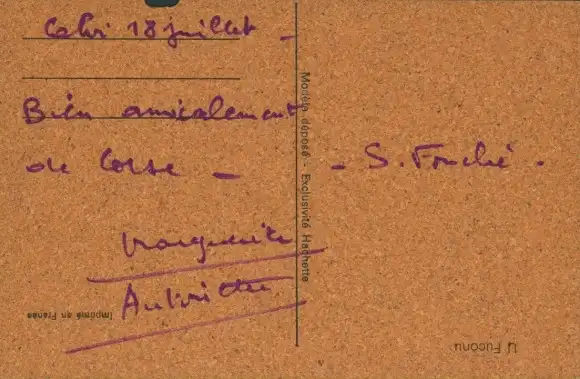 Calvi 18 juillet -
Bien amicalement
de Corse -
- S. Fouché.
Marguerite
Modèle déposé - Exclusivité Hachette
Imprimé en France
U Fuconu